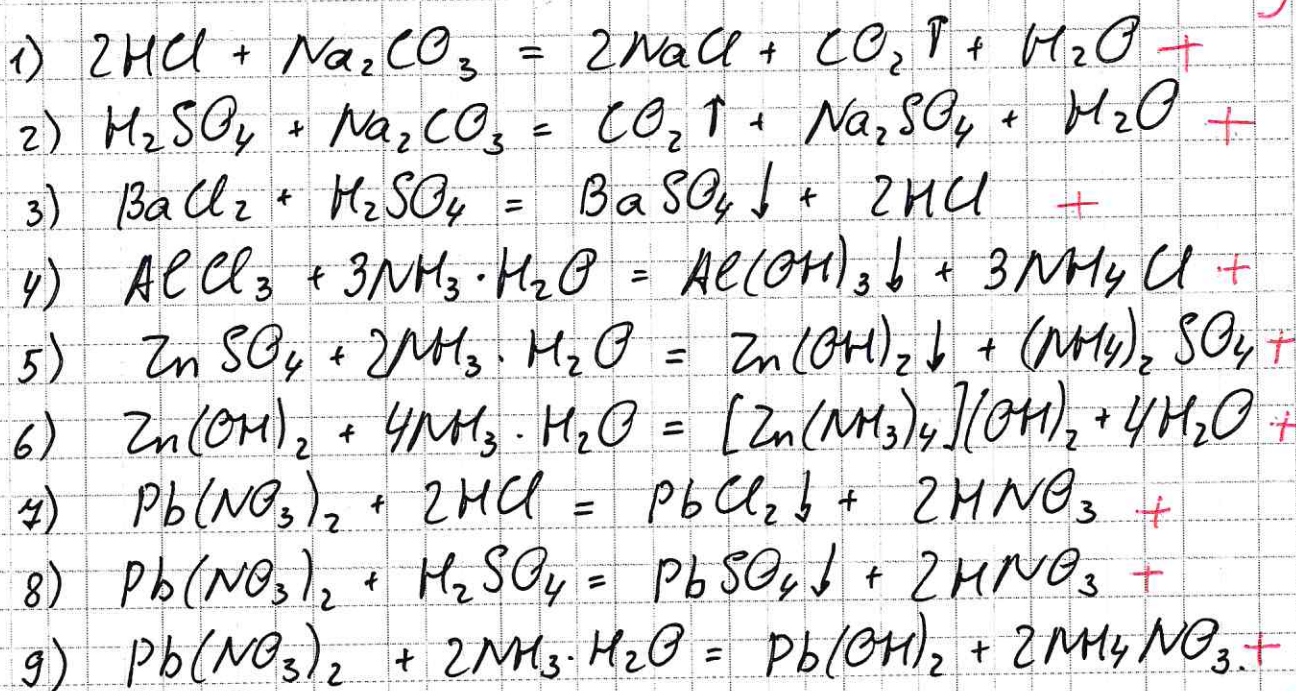 1) 2HCl + Na₂CO₃ = 2NaCl + CO₂↑ + H₂O +
2) H₂SO₄ + Na₂CO₃ = CO₂↑ + Na₂SO₄ + H₂O +
3) BaCl₂ + H₂SO₄ = BaSO₄↓ + 2HCl +
4) AlCl₃ + 3NH₃·H₂O = Al(OH)₃↓ + 3NH₄Cl +
5) ZnSO₄ + 2NH₃·H₂O = Zn(OH)₂↓ + (NH₄)₂SO₄ +
6) Zn(OH)₂ + 4NH₃·H₂O = [Zn(NH₃)₄](OH)₂ + 4H₂O +
7) Pb(NO₃)₂ + 2HCl = PbCl₂↓ + 2HNO₃ +
8) Pb(NO₃)₂ + H₂SO₄ = PbSO₄↓ + 2HNO₃ +
9) Pb(NO₃)₂ + 2NH₃·H₂O = Pb(OH)₂ + 2NH₄NO₃. +